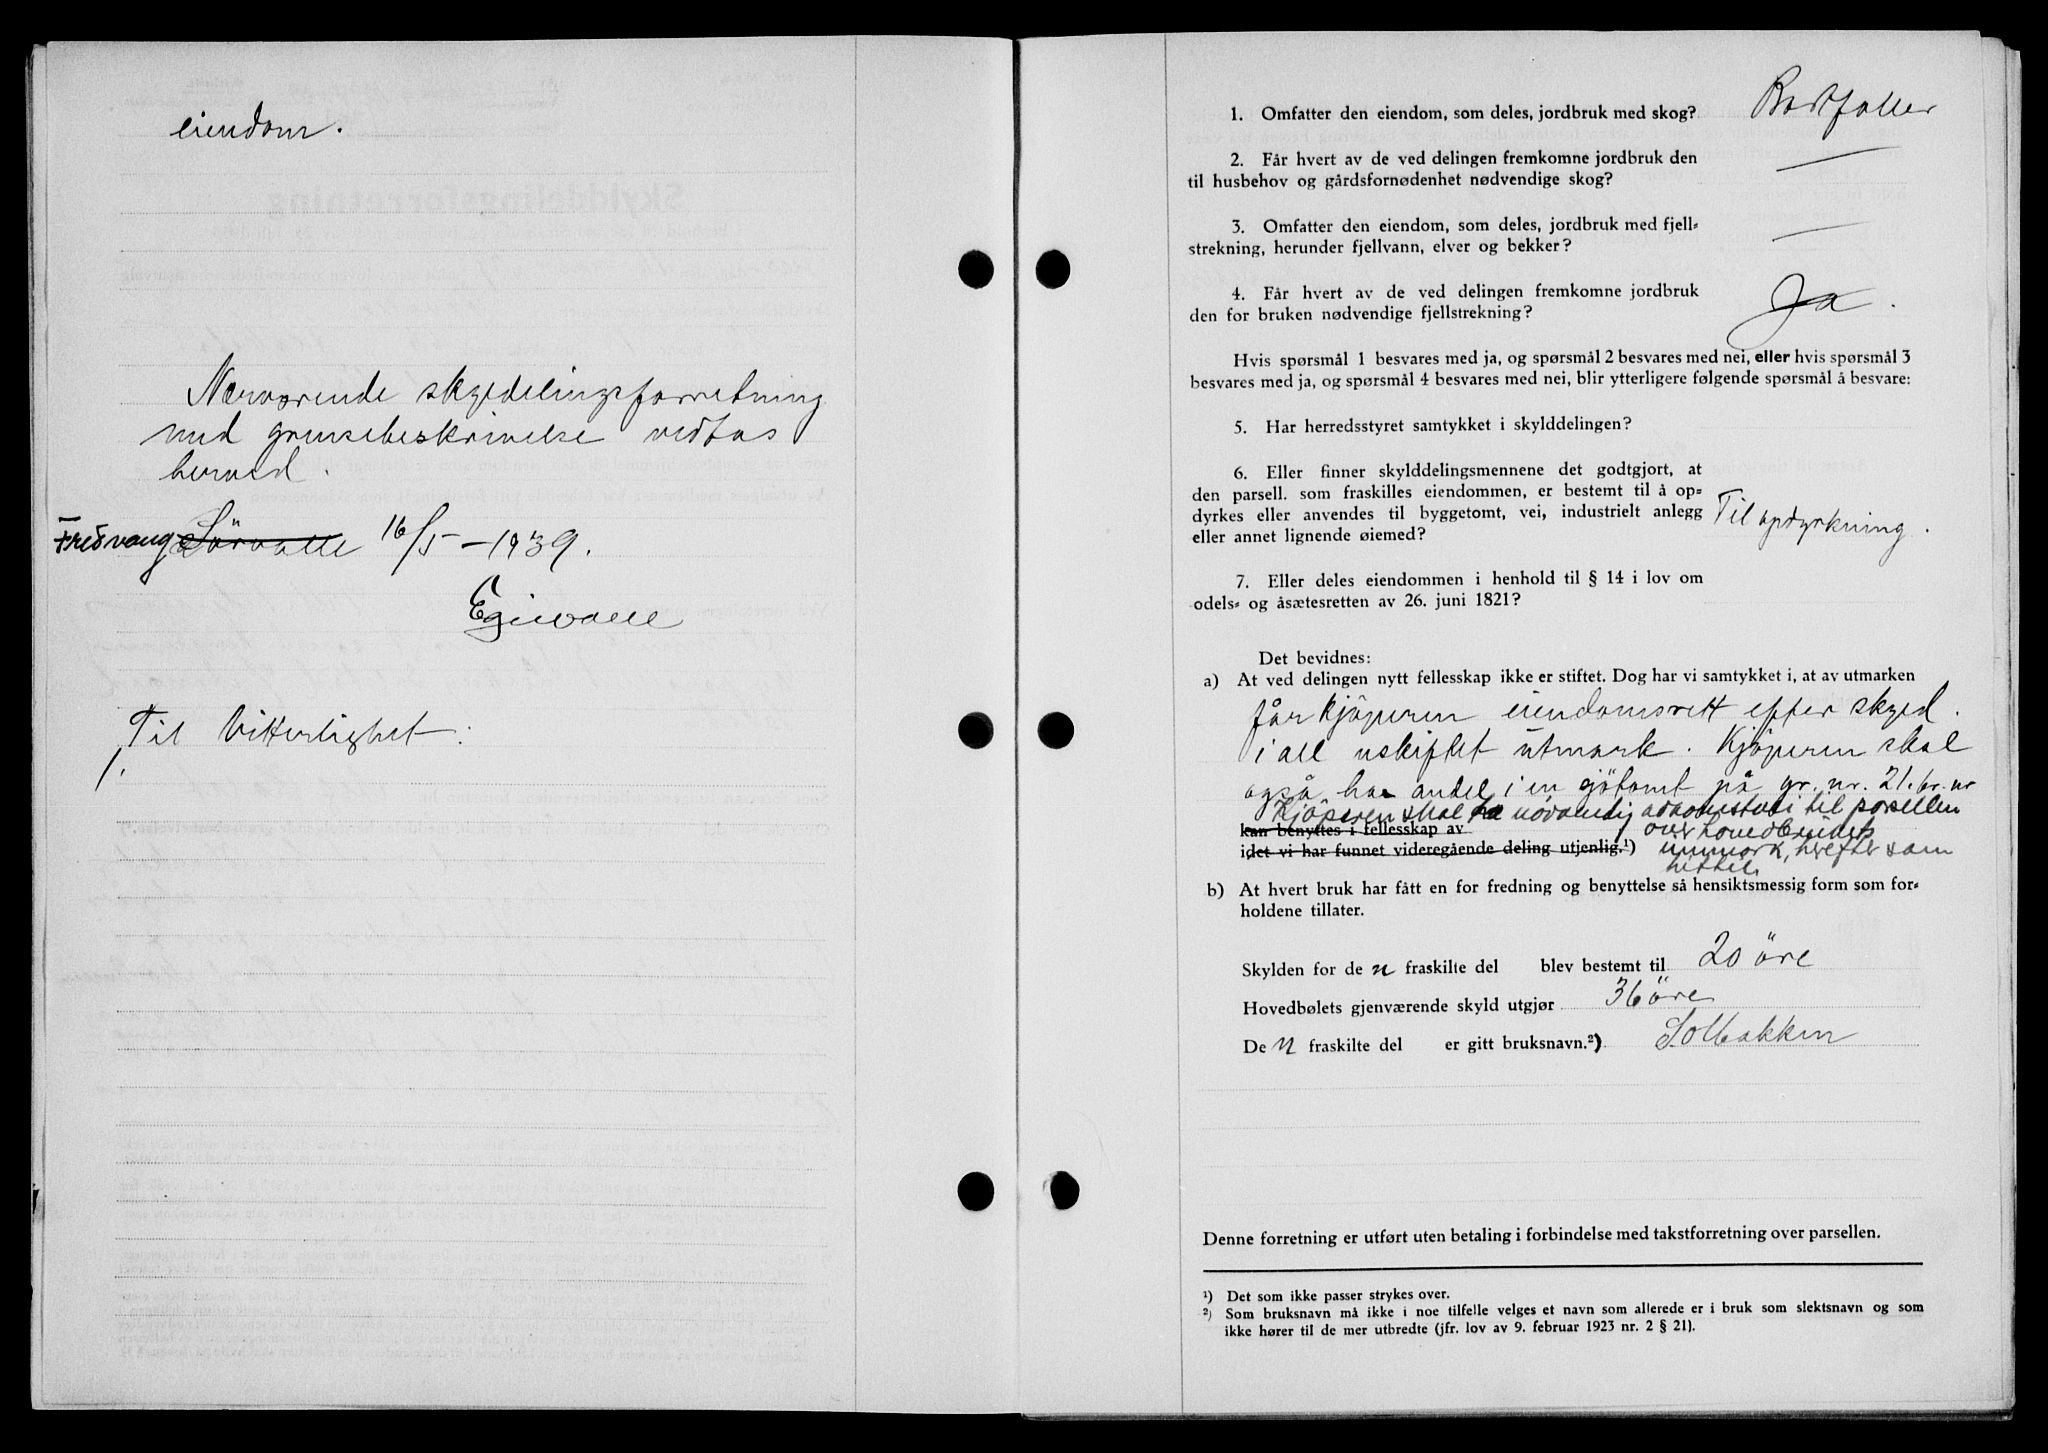 eiendom.
Nærværende skyldelingsforretning
med grensebeskrivelse vedtas
herved.
Fredvang Sörvalle 16/5-1939.
Til Vitterlighet:
1.
1. Omfatter den eiendom, som deles, jordbruk med skog? Bortfaller
2. Får hvert av de ved delingen fremkomne jordbruk den
til husbehov og gårdsfornødenhet nødvendige skog? —
3. Omfatter den eiendom, som deles, jordbruk med fjell-
strekning, herunder fjellvann, elver og bekker? —
4. Får hvert av de ved delingen fremkomne jordbruk
den for bruken nødvendige fjellstrekning? Ja.
Hvis spørsmål 1 besvares med ja, og spørsmål 2 besvares med nei, eller hvis spørsmål 3
besvares med ja, og spørsmål 4 besvares med nei, blir ytterligere følgende spørsmål å besvare:
5. Har herredsstyret samtykket i skylddelingen?
6. Eller finner skylddelingsmennene det godtgjort, at
den parsell. som fraskilles eiendommen, er bestemt til å op-
dyrkes eller anvendes til byggetomt, vei, industrielt anlegg Til opdyrkning.
eller annet lignende øiemed?
7. Eller deles eiendommen i henhold til § 14 i lov om
odels- og åsætesretten av 26. juni 1821?
Det bevidnes:
a) At ved delingen nytt fellesskap ikke er stiftet. Dog har vi samtykket i, at av utmarken
får kjöperen eiendomsrett efter skyld.
i all uskiftet utmark. Kjöperen skal
også ha andel i en gjötomt på gr. nr. 21. br. nr
Kjöperen skal ha növendig adkomstvei til parsellen
kan benyttes i fellesskap av over hovedbrukets
idet vi har funnet videregående deling utjenlig.¹) innmark, herefter som
hittil.
b) At hvert bruk har fått en for fredning og benyttelse så hensiktsmessig form som for-
holdene tillater.
Skylden for de n fraskilte del blev bestemt til 20 öre
Hovedbølets gjenværende skyld utgjør 36 öre
De n fraskilte del er gitt bruksnavn.²) Solbakken
Denne forretning er utført uten betaling i forbindelse med takstforretning over parsellen.
¹) Det som ikke passer strykes over.
²) Som bruksnavn må ikke i noe tilfelle velges et navn som allerede er i bruk som slektsnavn og som
ikke hører til de mer utbredte (jfr. lov av 9. februar 1923 nr. 2 § 21).